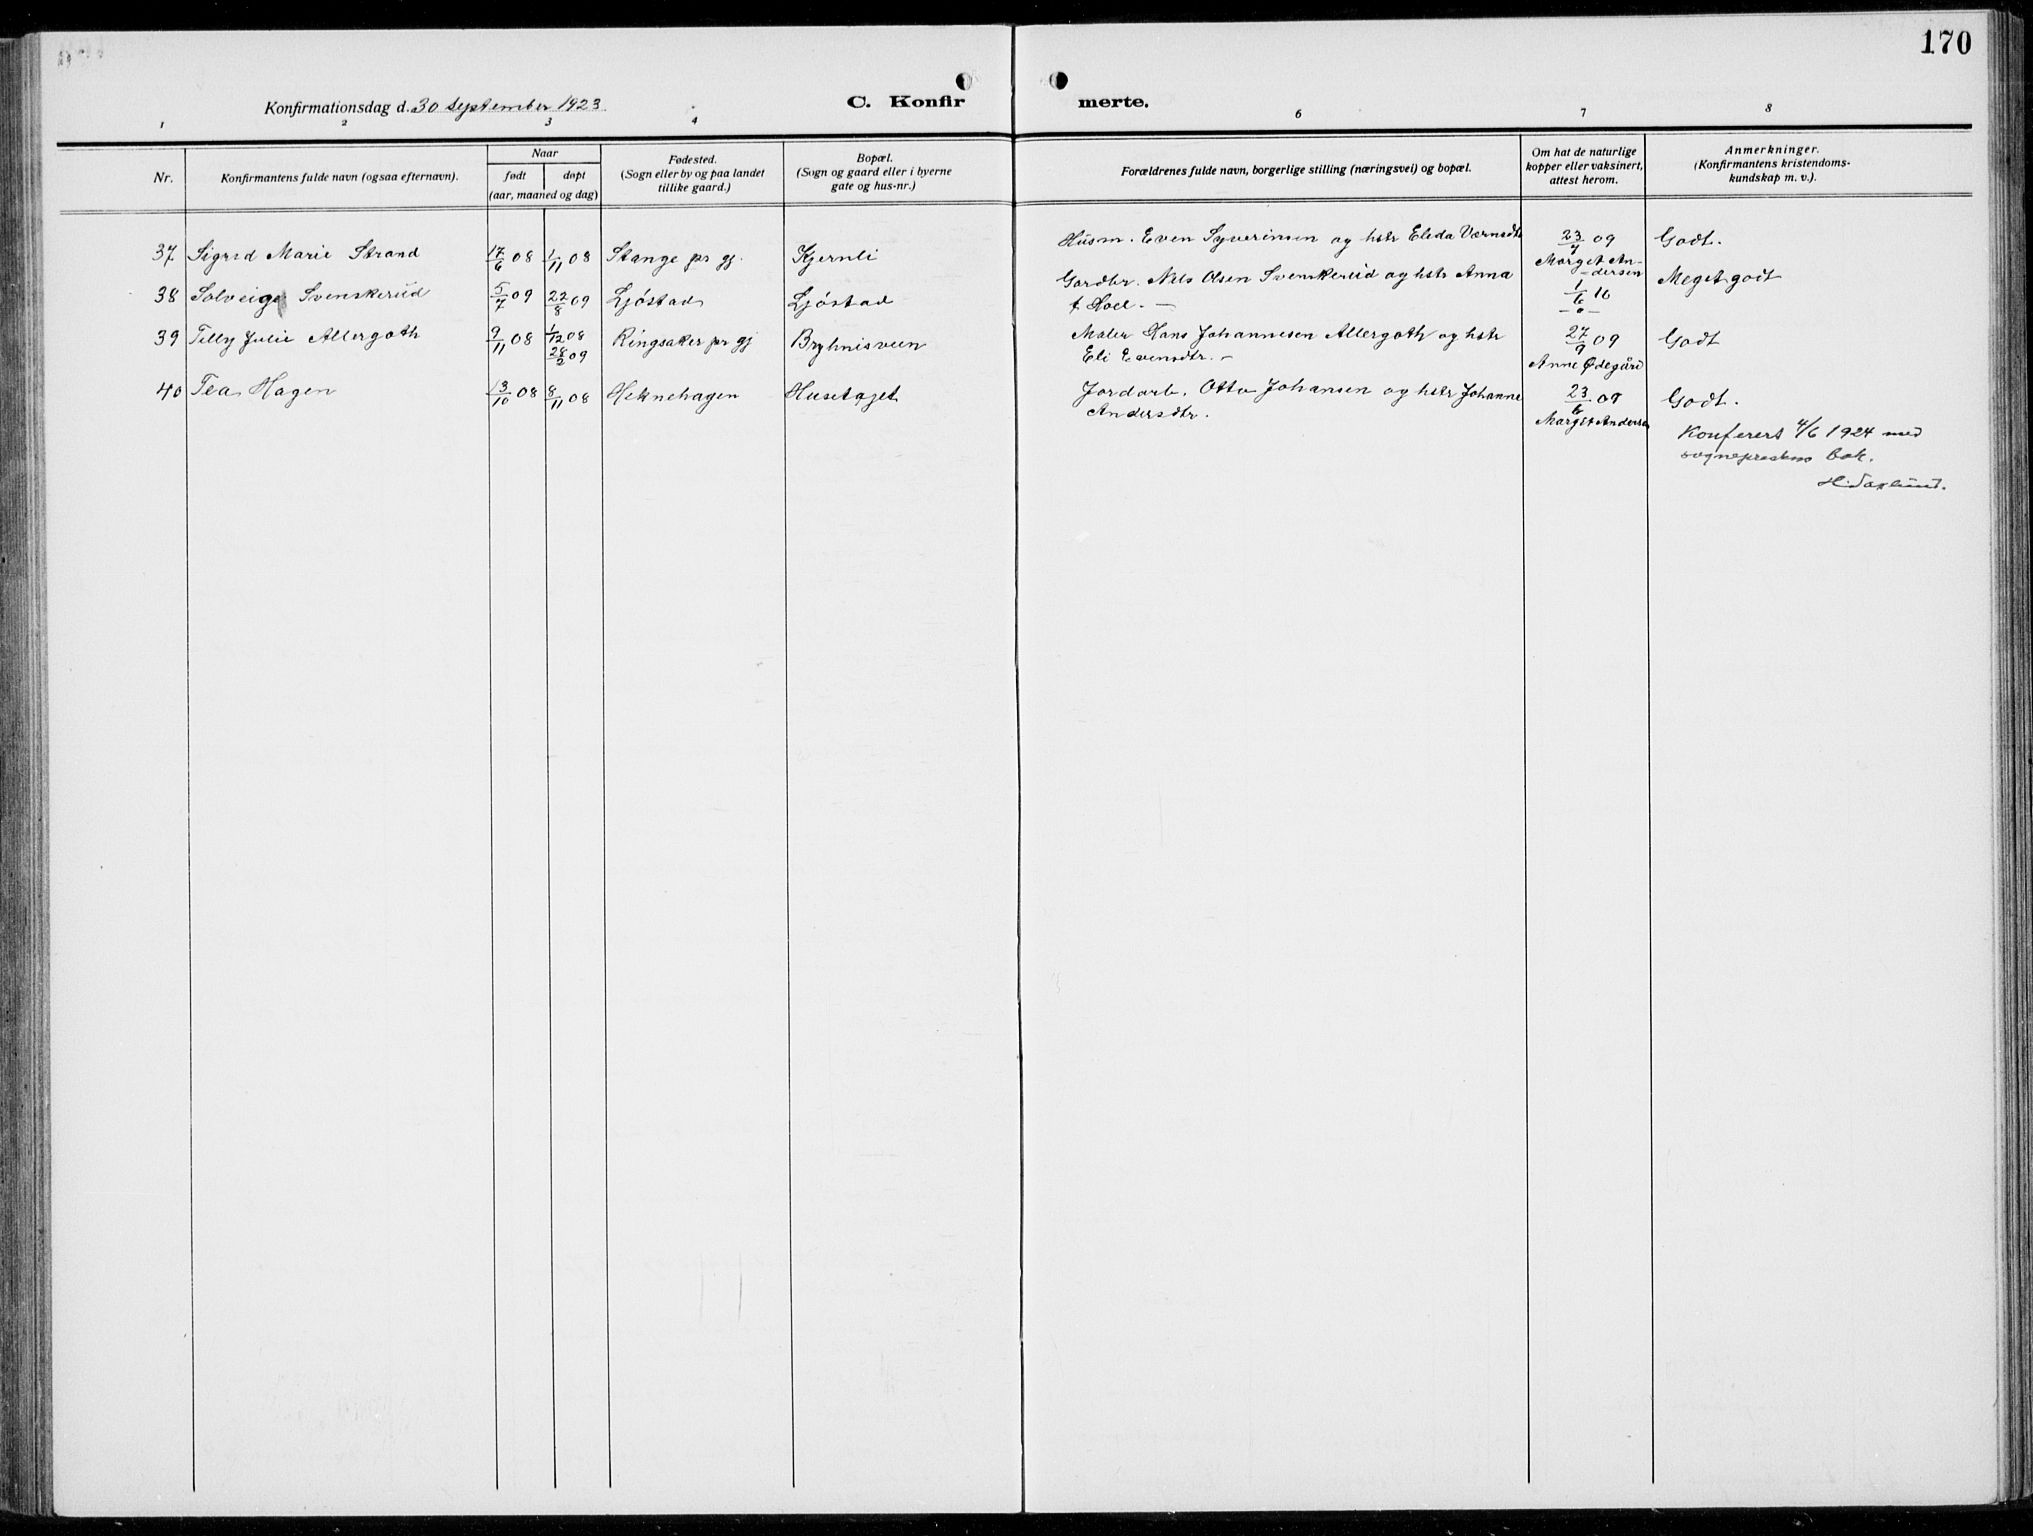 170
C. Konfir merte.
Konfirmationsdag d. 30 September 1923
1 2 3 4 6 7 8
Nr.
Konfirmantens fulde navn (ogsaa efternavn).
Naar
født døpt
(aar, maaned og dag)
Fødested.
(Sogn eller by og paa landet
tillike gaard.)
Bopæl.
(Sogn og gaard eller i byerne
gate og hus-nr.)
Forældrenes fulde navn, borgerlige stilling (næringsvei) og bopæl.
Om hat de naturlige
kopper eller vaksinert,
attest herom.
Anmerkninger.
(Konfirmantens kristendoms-
kundskap m. v.).
37 Sigrid Marie Strand 17/6 08 1/11 08 Stange pr gj. Kjernli Husm. Even Syverinsen og hstr Eleda 23/7 09 Godt.
Margit An-
dersen
38 Solveig Svenskerud 5/7 09 22/8 09 Ljøstad Ljøstad Gardbr. Nils Olsen Svenskerud og hstr Anna 1/6 16 Meget godt
f. Hoel. — -"-
39 Tilly Julie Allergoth 9/11 08 1/12 08 28/2 09 Ringsaker pr gj Bryhnisveen Maler Hans Johannesen Allergoth og hstr 27/9 09 Godt
Eli Evensdtr. — Anne Ødegård
40 Tea Hagen 13/10 08 8/11 08 Heknehagen Husetajet Jordarb. Otto Johansen og hstr Johanne 23/6 09 Godt.
Andersdtr. Margit Andersen
Konferert 4/6 1924 med
sogneprestens bok.
H.